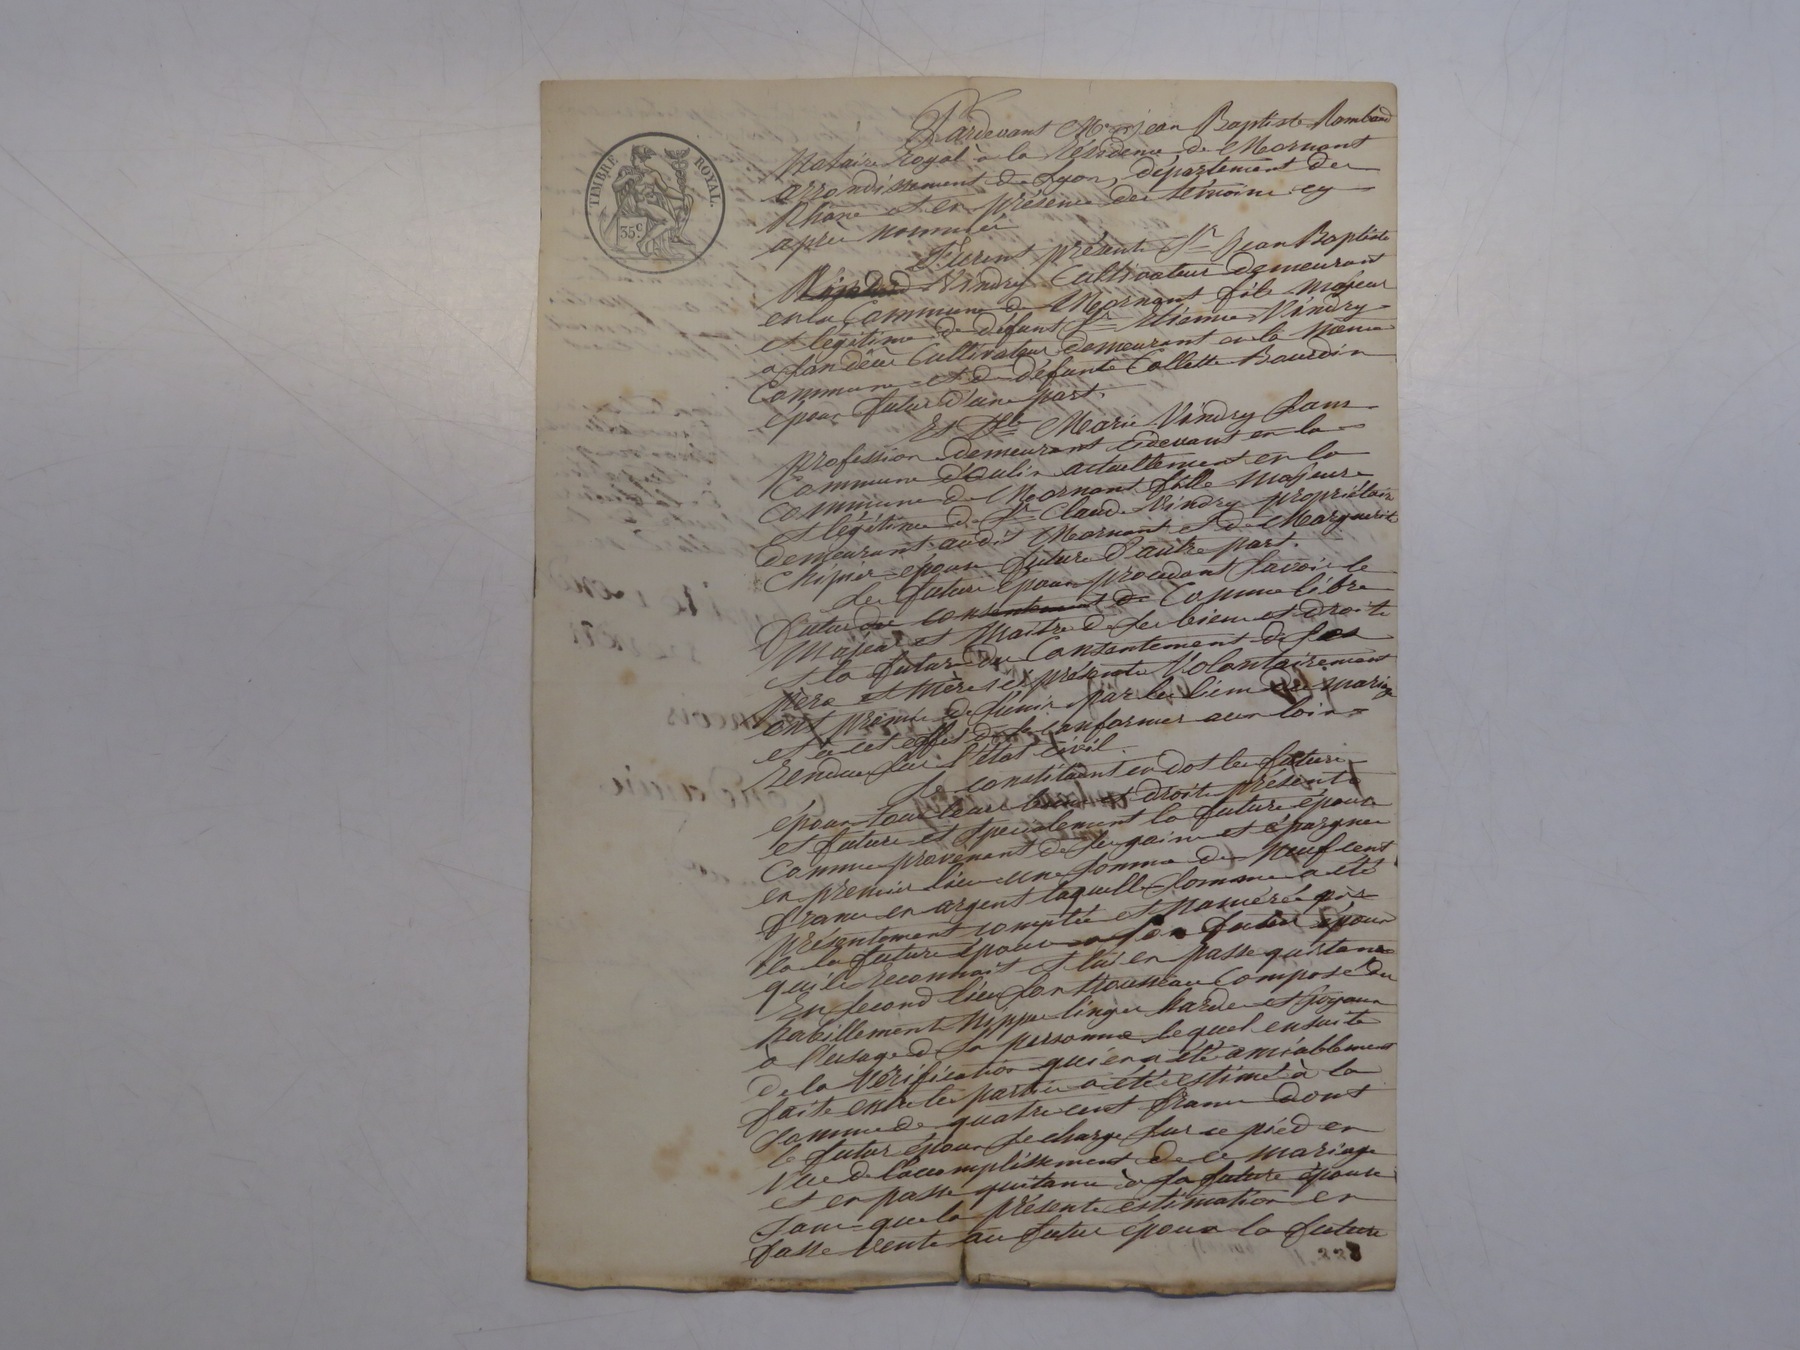 TIMBRE ROYAL.
35c
Pardevant Me Jean Baptiste Rambaud
Notaire Royal à la Résidence de Mornant
arrondissement de Lyon, département du
Rhône et en présence des témoins cy
après nommés
Furent présents Sr Jean Baptiste
Vindry Cultivateur demeurant
en la Commune de Mornant fils majeur
et légitime de défunt Sr Etienne Vindry
Cultivateur demeurant en la même
Commune et de défunte Collette Bourdin
époux futur d'une part.
Et Dlle Marie Vindry sans
profession demeurant cidevant en la
Commune doulin actuellement en la
commune de Mornant fille majeure
et légitime de Sr Claude Vindry propriétaire
demeurant audit Mornant et de Marguerite
Chipier épouse future d'autre part.
Les futurs époux procédant savoir le
futur du consentement de Comme libre
Majeur et Maitre de ses biens et droits
et la future du Consentement de ses
père et mère ici présents Volontairement
ont promis de s'unir par les liens du mariage
et à cet effet de se conformer aux loix
rendues sur l'état civil.
Se constituent en dot les futurs
époux tous leurs biens et droits présents
et futurs et spécialement la future épouse
Comme provenant de ses gains et épargnes
en premier lieu une somme de Neuf cent
francs en argent laquelle somme a été
présentement comptée et numérée par
la future épouse a son futur époux
qui le reconnait et lui en passe quittance
En second lieu son trousseau composé de
habillements nippes linges hardes et joyaux
à l'usage de sa personne lequel ensuite
de la Vérification qui en a été amiablement
faite entre les parties a été estimé à la
somme de quatre cent francs dont
le futur époux se charge sur ce pied en
Vue de l'accomplissement de ce mariage
et en passe quitance à sa future épouse
sans que la présente estimation en
fasse vente au futur époux la future